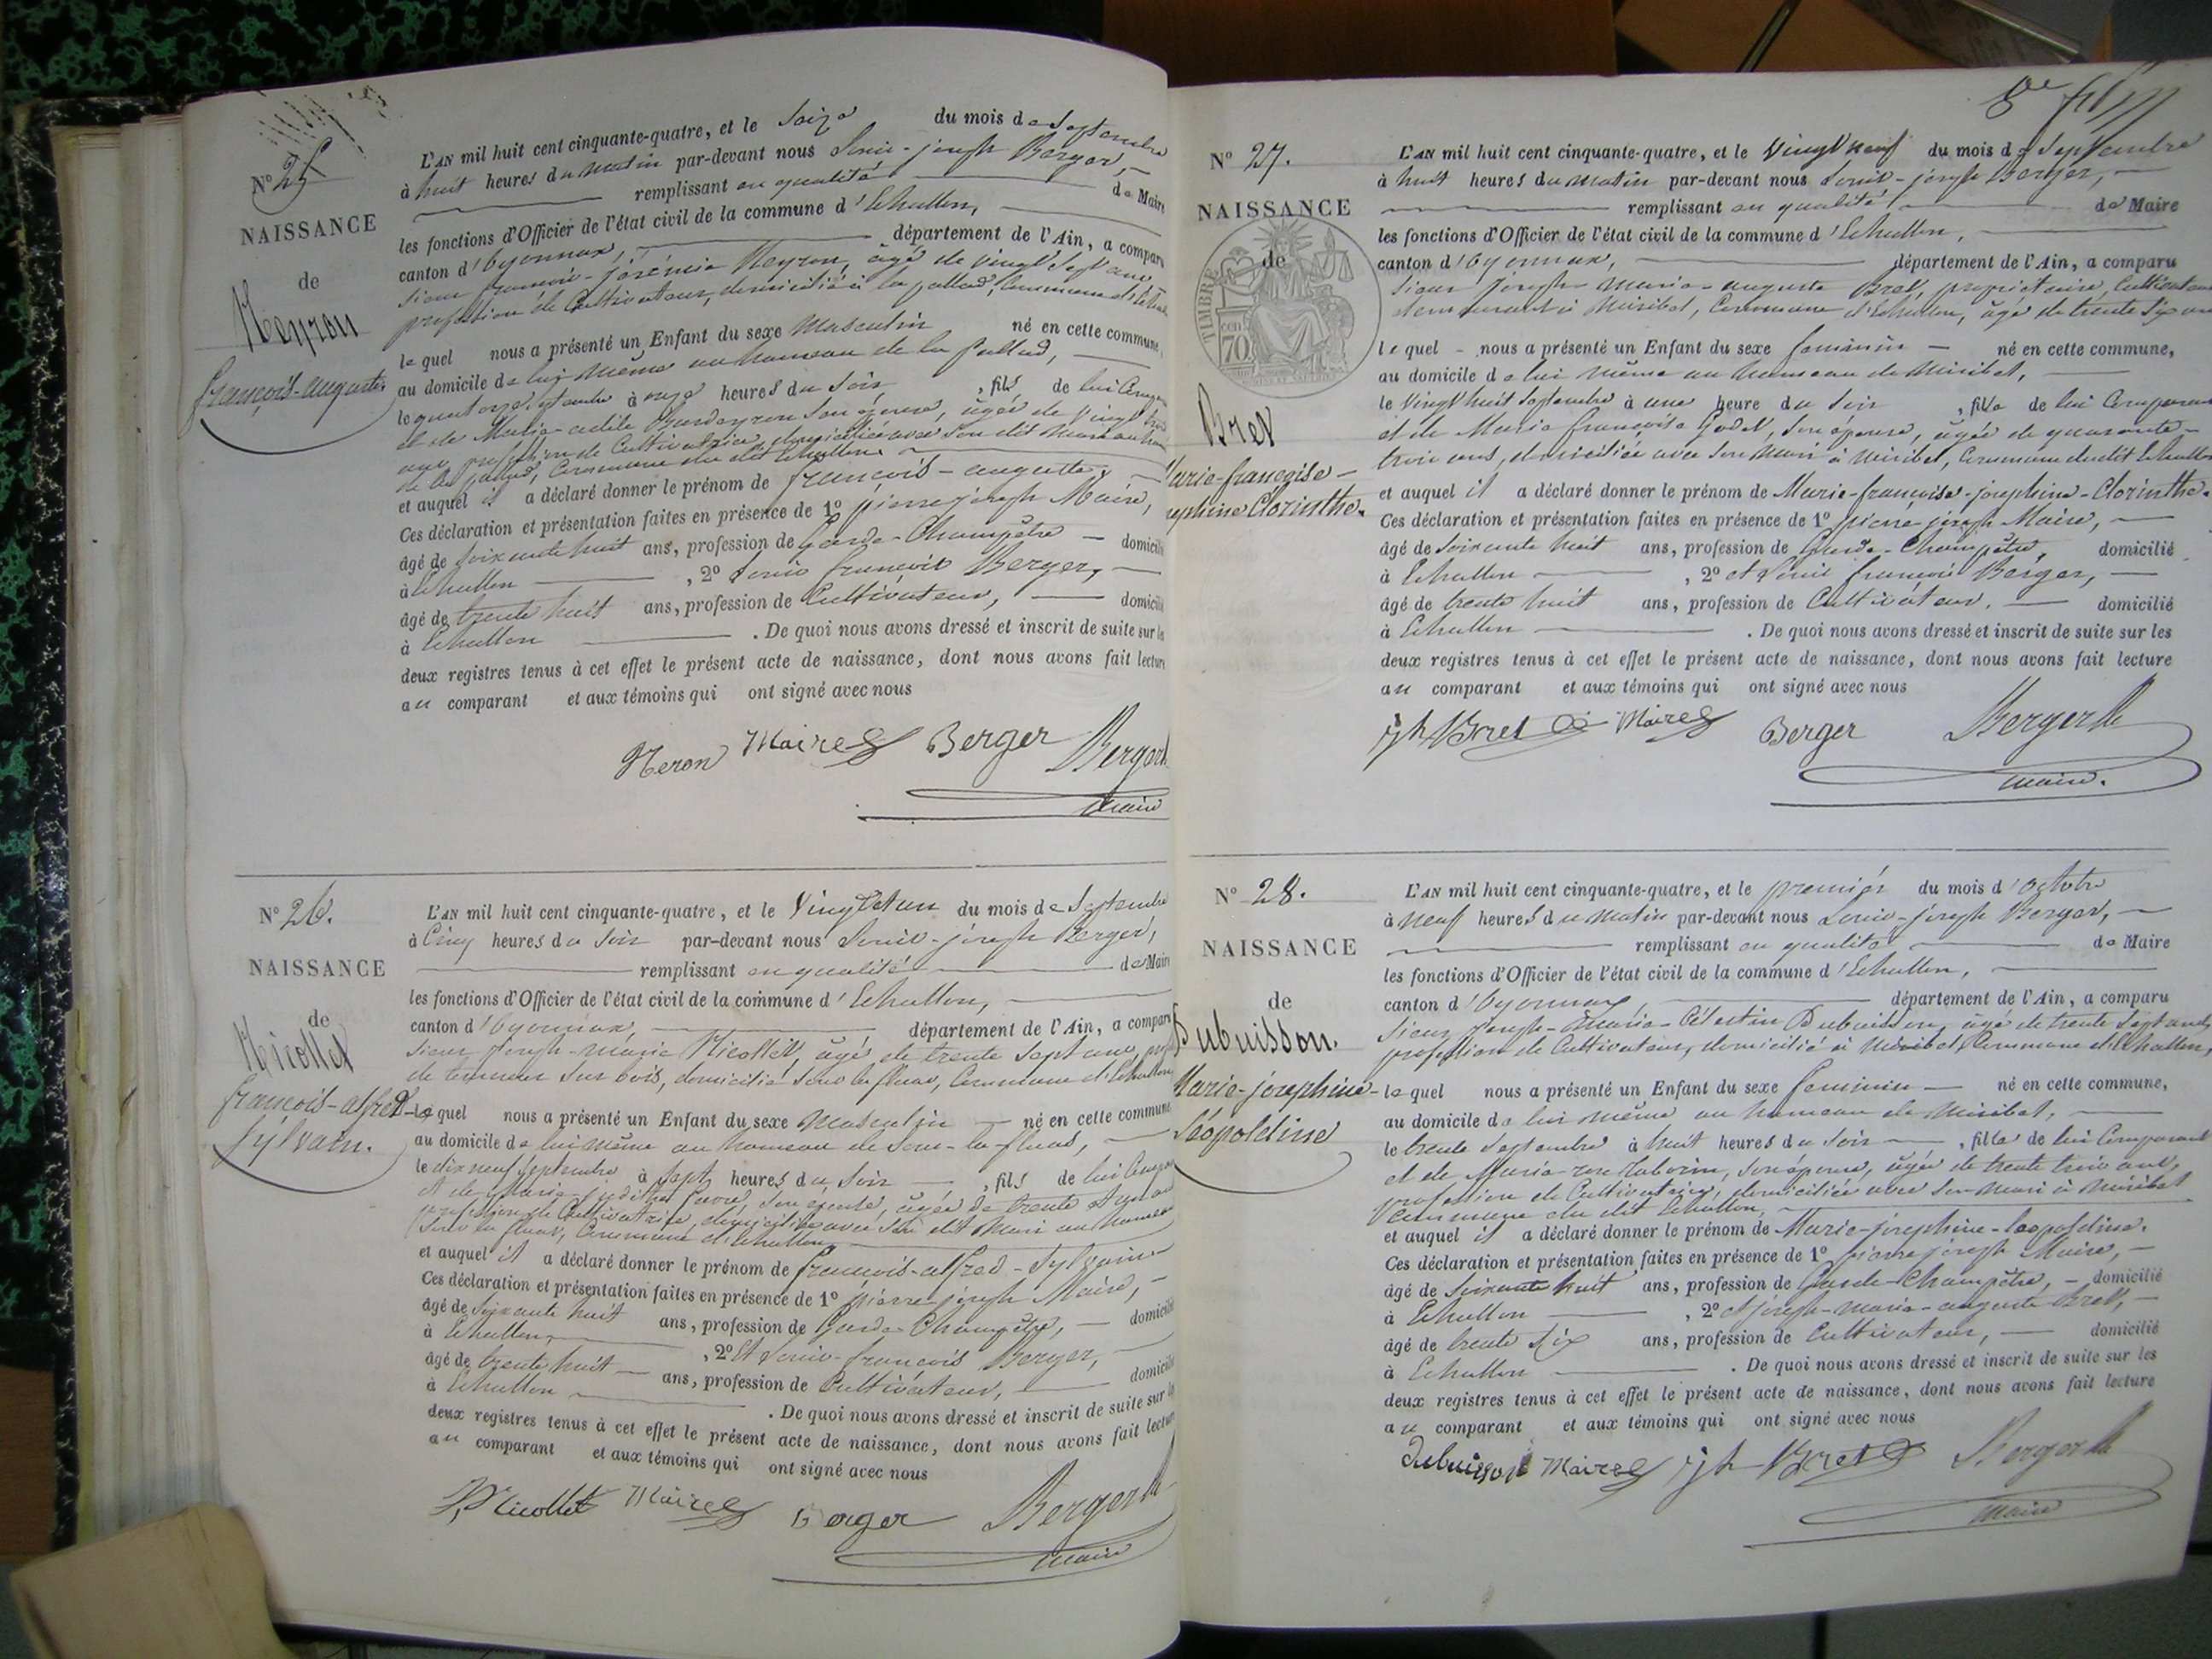 N° 25
NAISSANCE
de
Neyron
françois-auguste
L'AN mil huit cent cinquante-quatre, et le Seize du mois de Septembre
à huit heures du matin par-devant nous Louis-joseph Berger,
remplissant en qualité de Maire
les fonctions d'Officier de l'état civil de la commune d'Echallon,
canton d'Oyonnax, département de l'Ain, a comparu
Sieur françois-jérémie Neyron, âgé de vingt Sept ans,
profession de Cultivateur, domicilié à la pallud, Commune d'Echallon
lequel nous a présenté un Enfant du sexe Masculin né en cette commune,
au domicile de lui même au hameau de la Pallud,
le quatorze Septembre à onze heures du Soir, fils de lui Comparant
et de Marie-adèle Son épouse, âgée de Vingt trois
ans, profession de Cultivatrice, domiciliée avec Son dit Mari au hameau
de la pallud, Commune du dit Echallon
et auquel il a déclaré donner le prénom de françois-auguste.
Ces déclaration et présentation faites en présence de 1° pierre joseph Maire,
âgé de Soixante huit ans, profession de Garde-Champêtre domicilié
à Echallon, 2° Louis françois Berger,
âgé de trente huit ans, profession de Cultivateur, domicilié
à Echallon. De quoi nous avons dressé et inscrit de suite sur les
deux registres tenus à cet effet le présent acte de naissance, dont nous avons fait lecture
au comparant et aux témoins qui ont signé avec nous
Neron Maire Berger Berger
maire
N° 26.
NAISSANCE
de
Nicollet
françois-alfred-
Sylvain.
L'AN mil huit cent cinquante-quatre, et le Vingt et un du mois de Septembre
à Cinq heures du Soir par-devant nous Louis-joseph Berger,
remplissant en qualité de Maire
les fonctions d'Officier de l'état civil de la commune d'Echallon,
canton d'Oyonnax, département de l'Ain, a comparu
Sieur Joseph-marie Nicollet, âgé de trente Sept ans,
de tourneur Sur bois, domicilié Sous la fluas, Commune d'Echallon
lequel nous a présenté un Enfant du sexe Masculin né en cette commune
au domicile de lui même au hameau de Sous-la-fluas,
le dix neuf Septembre à Sept heures du Soir, fils de lui Comparant
et de Marie-judith favre, Son épouse, âgée de trente
profession de Cultivatrice, domiciliée avec Son dit Mari au hameau
Sous la fluas, Commune d'Echallon
et auquel il a déclaré donner le prénom de françois-alfred-Sylvain
Ces déclaration et présentation faites en présence de 1° pierre joseph Maire,
âgé de Soixante huit ans, profession de Garde Champêtre, domicilié
à Echallon, 2° Et Louis-françois Berger,
âgé de trente huit ans, profession de Cultivateur, domicilié
à Echallon. De quoi nous avons dressé et inscrit de suite sur les
deux registres tenus à cet effet le présent acte de naissance, dont nous avons fait lecture
au comparant et aux témoins qui ont signé avec nous
Nicollet Maire Berger Berger
maire
N° 27.
NAISSANCE
de
TIMBRE
70
Bret
Marie-françoise-
josephine Clorinthe.
L'AN mil huit cent cinquante-quatre, et le Vingt neuf du mois de Septembre
à huit heures du matin par-devant nous Louis-joseph Berger,
remplissant en qualité de Maire
les fonctions d'Officier de l'état civil de la commune d'Echallon,
canton d'Oyonnax, département de l'Ain, a comparu
Sieur joseph-marie-auguste Bret, propriétaire, Cultivateur
demeurant à Miribel, Commune d'Echallon, âgé de trente Six ans
lequel nous a présenté un Enfant du sexe féminin né en cette commune,
au domicile de lui même au hameau de Miribel,
le Vingt huit Septembre à une heure du Soir, fille de lui Comparant
et de Marie françoise Godet, Son épouse, âgée de quarante-
trois ans, domiciliée avec Son Mari à Miribel, Commune dudit Echallon
et auquel il a déclaré donner le prénom de Marie-françoise-josephine-Clorinthe.
Ces déclaration et présentation faites en présence de 1° pierre joseph Maire,
âgé de Soixante huit ans, profession de Garde-Champêtre, domicilié
à Echallon, 2° et Louis françois Berger,
âgé de trente huit ans, profession de Cultivateur. domicilié
à Echallon. De quoi nous avons dressé et inscrit de suite sur les
deux registres tenus à cet effet le présent acte de naissance, dont nous avons fait lecture
au comparant et aux témoins qui ont signé avec nous
jph Bret Maire Berger Berger
maire.
N° 28.
NAISSANCE
de
Dubuisson.
Marie-josephine-
Léopoldine
L'AN mil huit cent cinquante-quatre, et le premier du mois d'Octobre
à neuf heures du matin par-devant nous Louis-joseph Berger,
remplissant en qualité de Maire
les fonctions d'Officier de l'état civil de la commune d'Echallon,
canton d'Oyonnax, département de l'Ain, a comparu
Sieur Joseph-Marie-Célestin Dubuisson, âgé de trente Sept ans,
profession de Cultivateur, domicilié à Miribel, Commune d'Echallon,
lequel nous a présenté un Enfant du sexe féminin né en cette commune,
au domicile de lui même au hameau de Miribel,
le trente Septembre à huit heures du Soir, fille de lui Comparant
et de Marie-rose Son épouse, âgée de trente trois ans,
profession de Cultivatrice, domiciliée avec Son Mari à Miribel
Commune du dit Echallon,
et auquel il a déclaré donner le prénom de Marie-josephine-léopoldine.
Ces déclaration et présentation faites en présence de 1° pierre joseph Maire,
âgé de Soixante huit ans, profession de Garde-Champêtre, domicilié
à Echallon, 2° et joseph-marie-auguste Bret,
âgé de trente Six ans, profession de Cultivateur, domicilié
à Echallon. De quoi nous avons dressé et inscrit de suite sur les
deux registres tenus à cet effet le présent acte de naissance, dont nous avons fait lecture
au comparant et aux témoins qui ont signé avec nous
Dubuisson Maire jph Bret Berger
maire